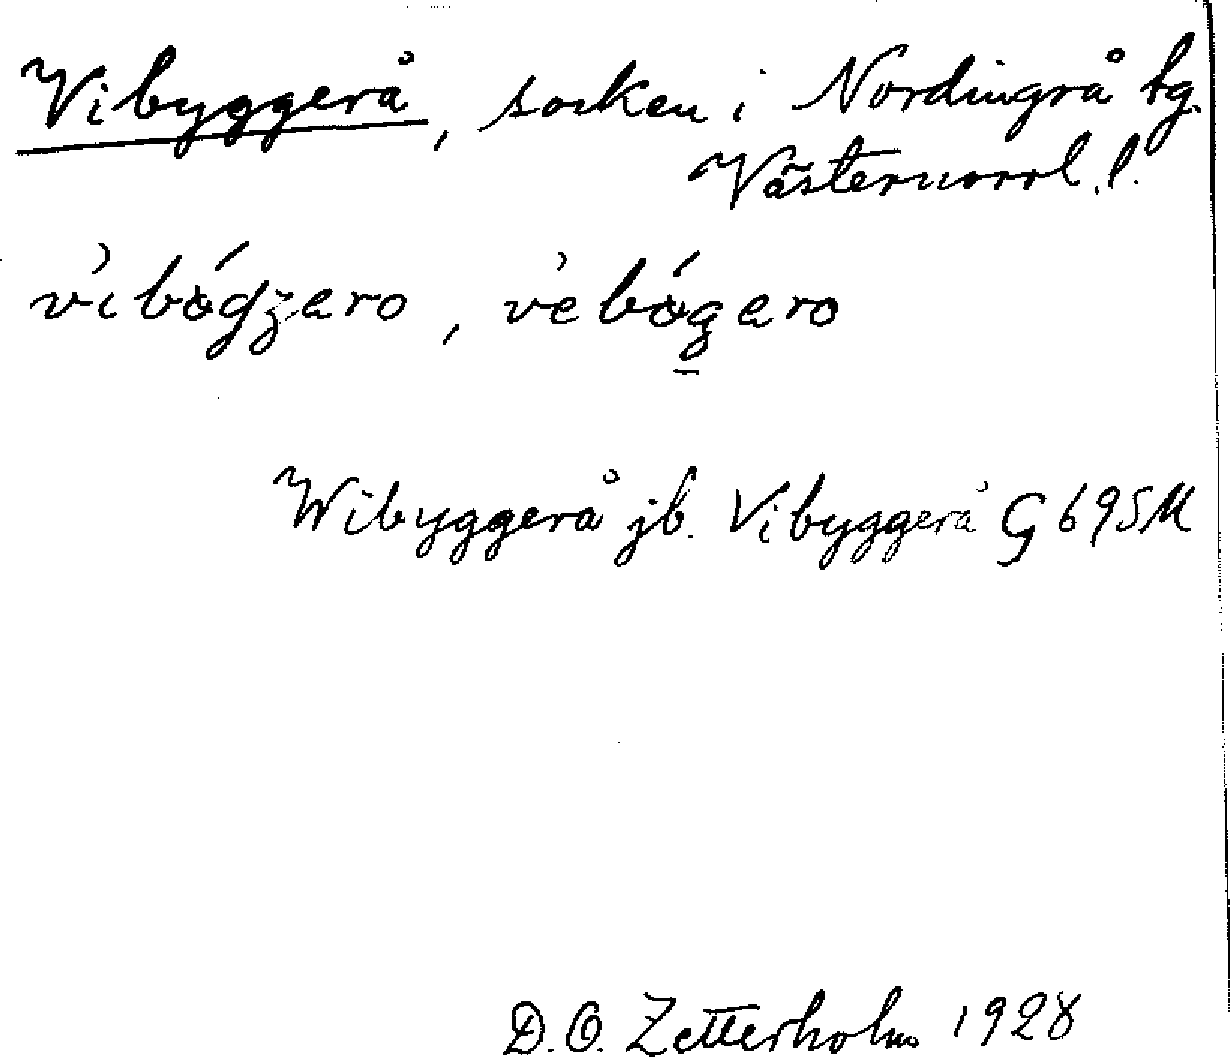 Vibyggerå, socken i Nordingrå tg.
Västernorrl. l.
Wibyggerå jb. Vibyggerå G 695 M
D. O. Zetterholm 1928